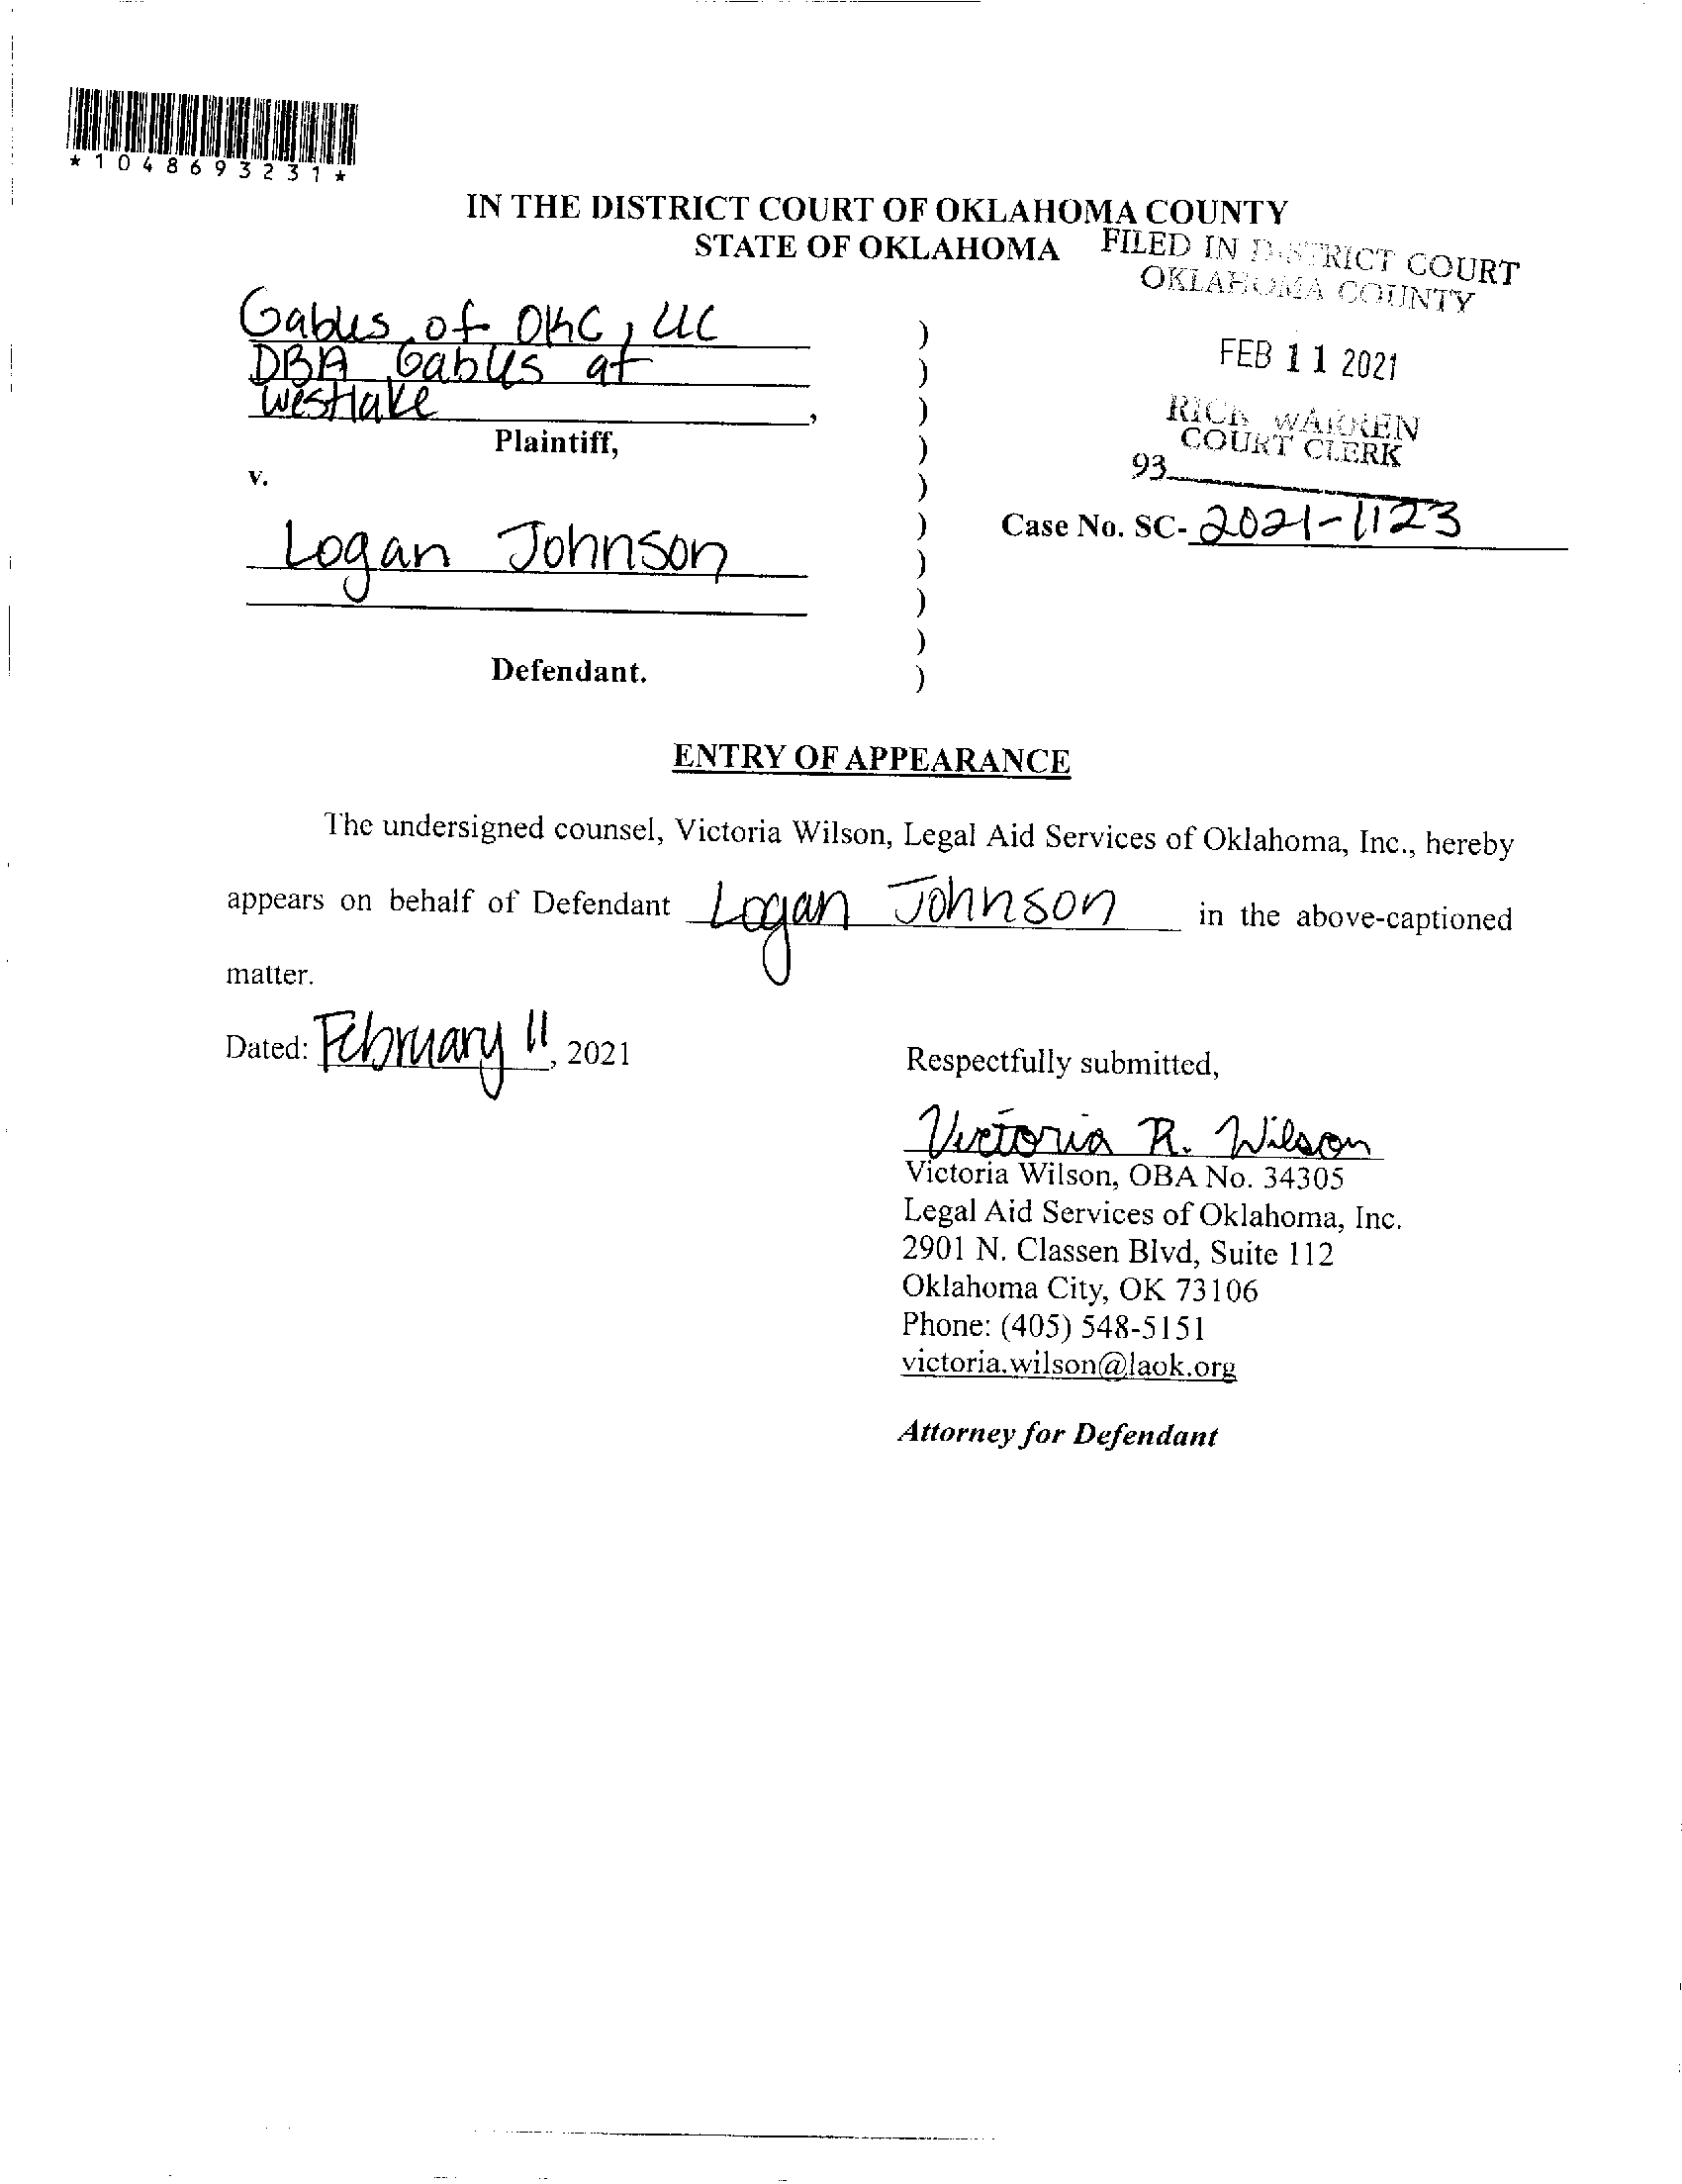 *1048693231*
IN THE DISTRICT COURT OF OKLAHOMA COUNTY
STATE OF OKLAHOMA
FILED IN DISTRICT COURT
OKLAHOMA COUNTY
FEB 11 2021
RICK WARREN
COURT CLERK
93
Gables of OKC, LLC )
DBA Gables at )
Westlake , )
Plaintiff, )
v. )
Case No. SC-2021-1123 )
Logan Johnson )
)
)
Defendant. )
ENTRY OF APPEARANCE
The undersigned counsel, Victoria Wilson, Legal Aid Services of Oklahoma, Inc., hereby
appears on behalf of Defendant Logan Johnson in the above-captioned
matter.
Dated: February 11, 2021
Respectfully submitted,
Victoria R. Wilson
Victoria Wilson, OBA No. 34305
Legal Aid Services of Oklahoma, Inc.
2901 N. Classen Blvd, Suite 112
Oklahoma City, OK 73106
Phone: (405) 548-5151
victoria.wilson@laok.org
Attorney for Defendant